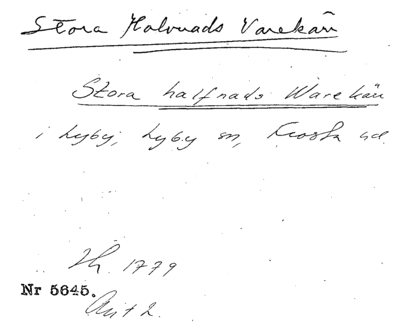 Stora Halvnads Varekärr
Stora halfnads Warekärr
i Lyby, Lyby sn, Frosta hd.
Lh. 1779
Nr 5645.
Akt 2.